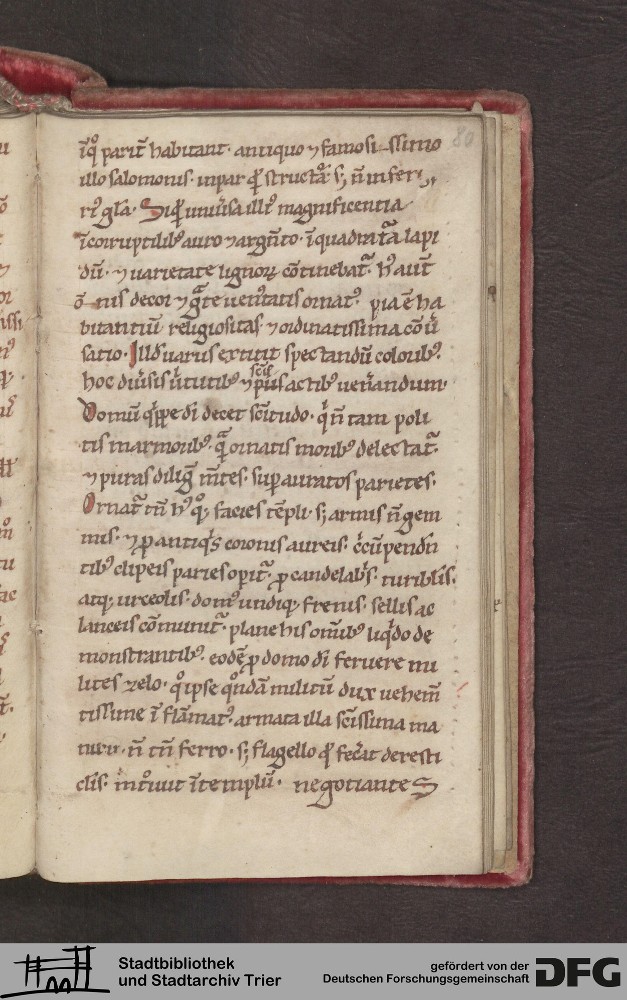 80
ī qͦ parit᷑ habitant· antiquo ⁊ famosi ssimo
illo salomonis· inpar qͥd structa᷑· sꝫ ñ inferi
ri᷒ gl̄a· Siqͥd uniu᷒sa illi᷒ magnificentia
ī corruptilibꝫ auro ⁊ arg̅nto· ī quadratᷓ lapi
dū· ⁊ uarietate lignoꝝ cōtinebat᷑· h᷒ aut̄
ō nis decor ⁊ gᷓte uenu᷒statis ornat᷒· pia ē ha
bitantiū religiositas· ⁊ ordinatissima cōu᷒
satio· Illd̄ uariis extitit spectandū coloribꝫ·
hoc diu᷒sis uͥtutibꝫ ⁊ sc̄is piis actibꝫ uen᷒andum·
Domū qͥppe dī decet sc̄itudo· qͥ ñ tam poli
tis marmoribꝫ· qᷓ ornatis moribꝫ delectat᷑·
⁊ puras diligͥ m̄tes· suꝑ auratos parietes·
Ornat᷑ tn̄ h᷒ qͦqꝫ facies tēpli· sꝫ armis ñ gem
mis· ⁊ ꝓ antiqͥs coronis aureis· cͥcūpendn̄
tibꝫ clipeis paries oꝑit᷑· ꝓ candelabͥs· turiblͥs·
atqꝫ urceolis· dom᷒ undiqꝫ frenis· sellis ac
lanceis cōmunit᷑· plane his om̄ibꝫ liqͥdo de
monstrantibꝫ· eodē ꝓ domo dī feruere mi
lites zelo· qͦ ipse qͦndā militū dux uehem̄
tissime ī flāmat᷒· armata illa sc̄issima ma
nu· ñ tn̄ ferro· sꝫ flagello qͥd fec᷒at de resti
cl̄is· intͦiuit ī templū· negotiantes
Stadtbibliothek
und Stadtarchiv Trier
gefördert von der
Deutschen Forschungsgemeinschaft
DFG